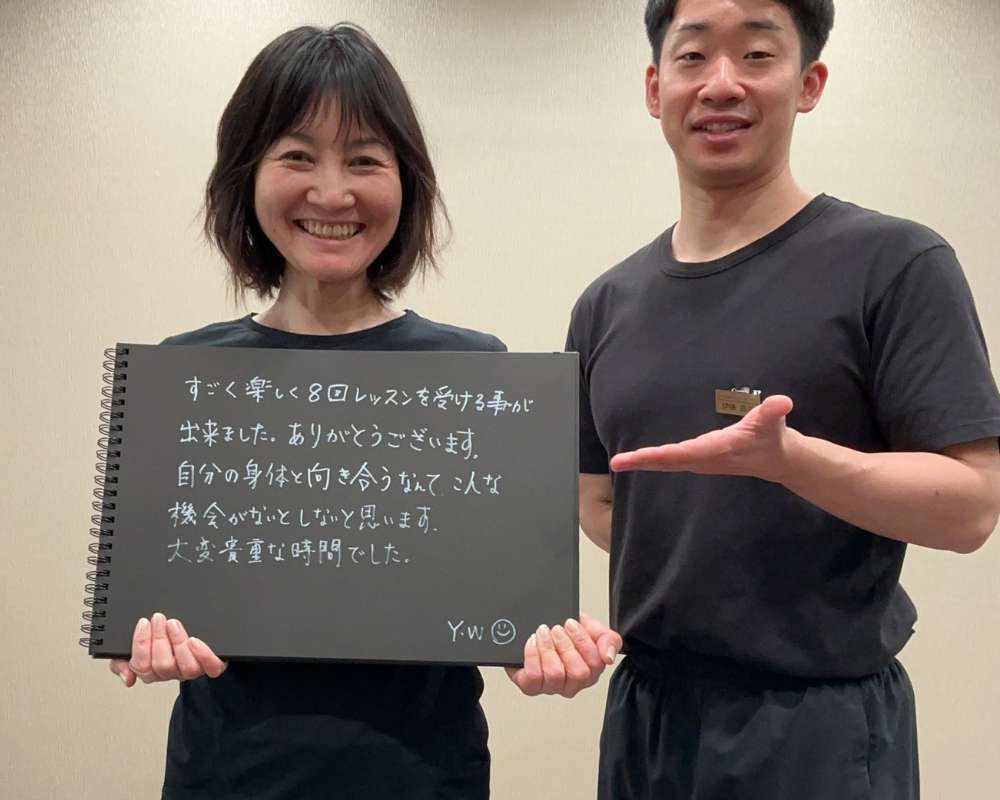 すごく楽しく8回レッスンを受ける事が
出来ました。ありがとうございます。
自分の身体と向き合うなんて、こんな
機会がないとしないと思います。
大変貴重な時間でした。
Y.W
伊藤